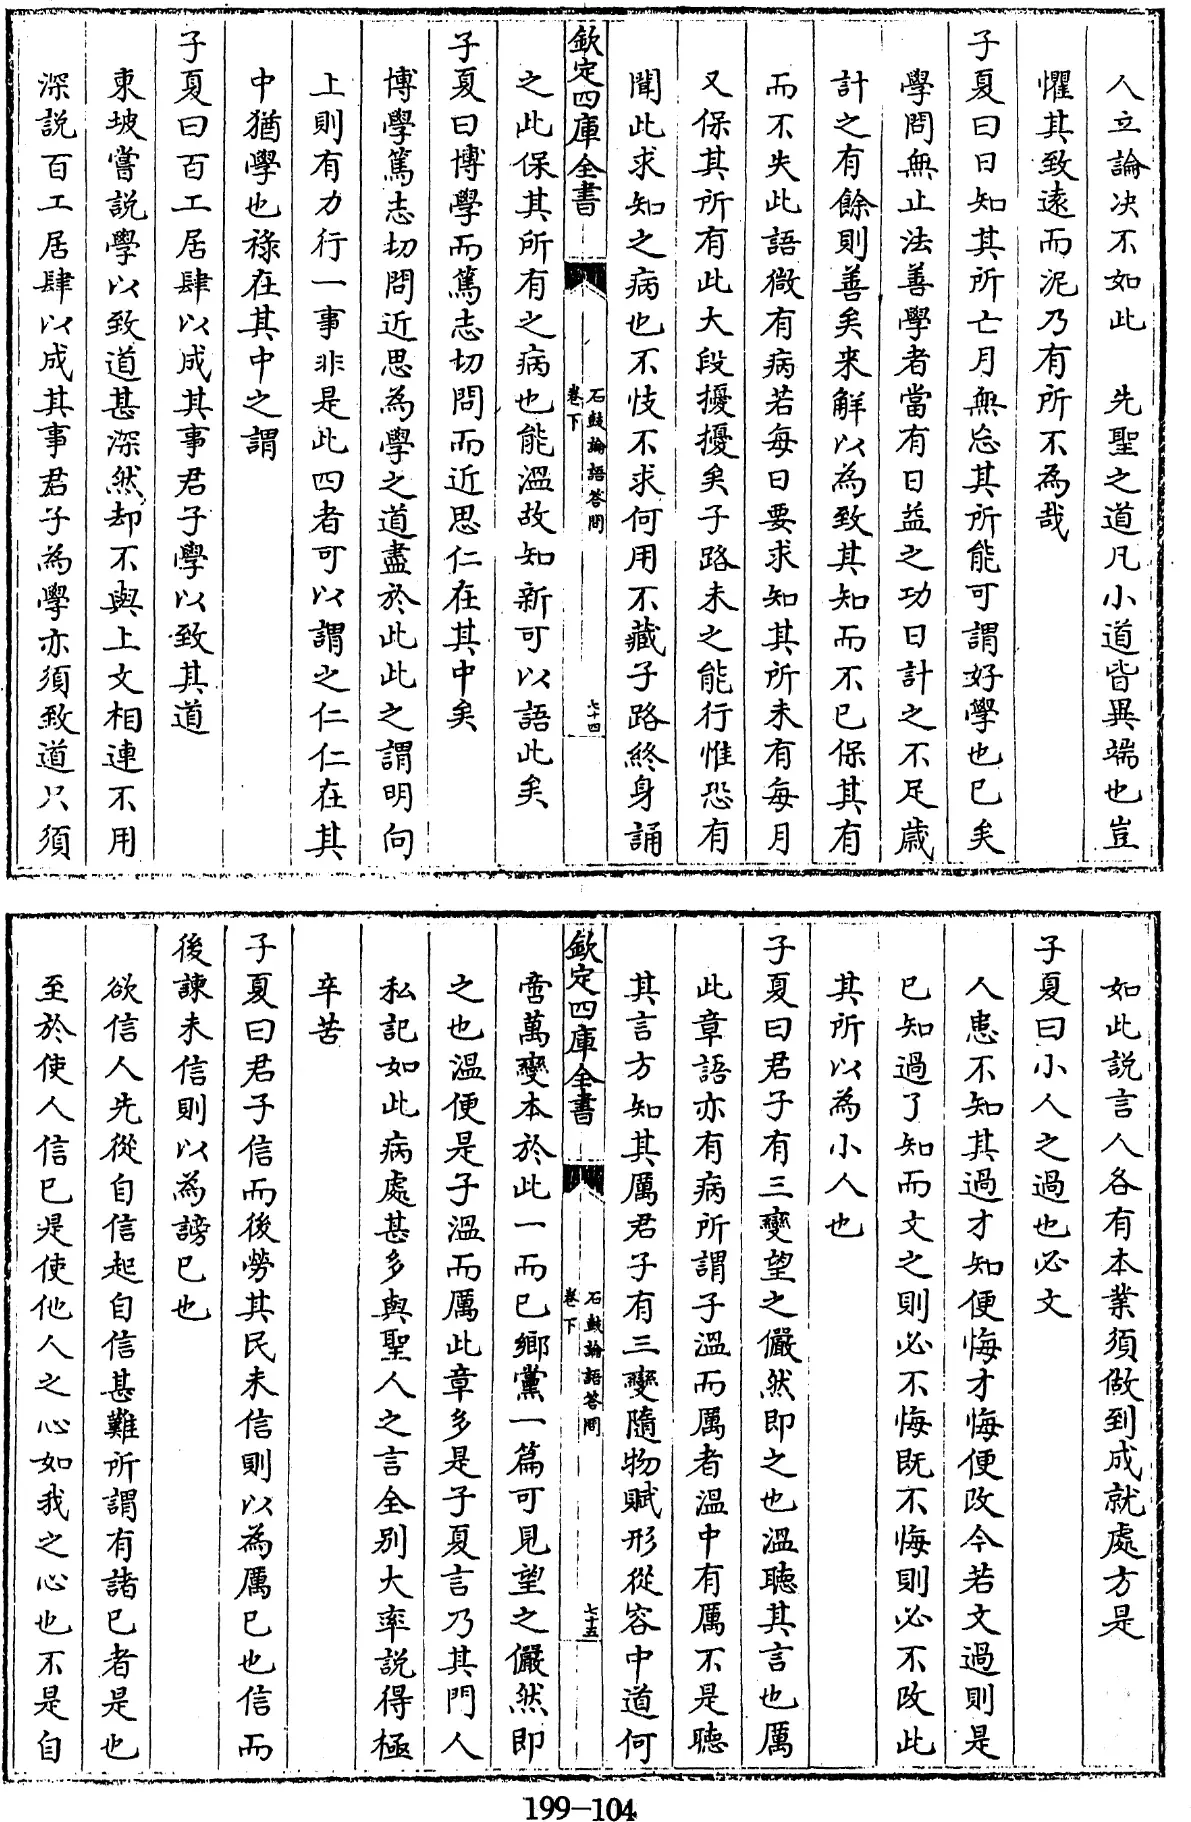 人立論决不如此　先聖之道凡小道皆異端也豈
懼其致遠而泥乃有所不為哉
子夏曰日知其所亡月無忘其所能可謂好學也已矣
學問無止法善學者當有日益之功日計之不足歲
計之有餘則善矣來解以為致其知而不已保其有
而不失此語微有病若每日要求知其所未有每月
又保其所有此大段擾擾矣子路未之能行惟恐有
聞此求知之病也不忮不求何用不藏子路終身誦
欽定四庫全書
石鼓論語答問
卷下
七十四
之此保其所有之病也能溫故知新可以語此矣
子夏曰博學而篤志切問而近思仁在其中矣
博學篤志切問近思為學之道盡於此此之謂明向
上則有力行一事非是此四者可以謂之仁仁在其
中猶學也祿在其中之謂
子夏曰百工居肆以成其事君子學以致其道
東坡嘗説學以致道甚深然却不與上文相連不用
深説百工居肆以成其事君子為學亦須致道只須
如此説言人各有本業須做到成就處方是
子夏曰小人之過也必文
人患不知其過才知便悔才悔便改今若文過則是
已知過了知而文之則必不悔既不悔則必不改此
其所以為小人也
子夏曰君子有三變望之儼然即之也溫聽其言也厲
此章語亦有病所謂子溫而厲者溫中有厲不是聽
其言方知其厲君子有三變隨物賦形從容中道何
欽定四庫全書
石鼓論語答問
卷下
七十五
啻萬變本於此一而已鄉黨一篇可見望之儼然即
之也溫便是子溫而厲此章多是子夏言乃其門人
私記如此病處甚多與聖人之言全别大率説得極
辛苦
子夏曰君子信而後勞其民未信則以為厲已也信而
後諫未信則以為謗已也
欲信人先從自信起自信甚難所謂有諸已者是也
至於使人信已是使他人之心如我之心也不是自
199-104